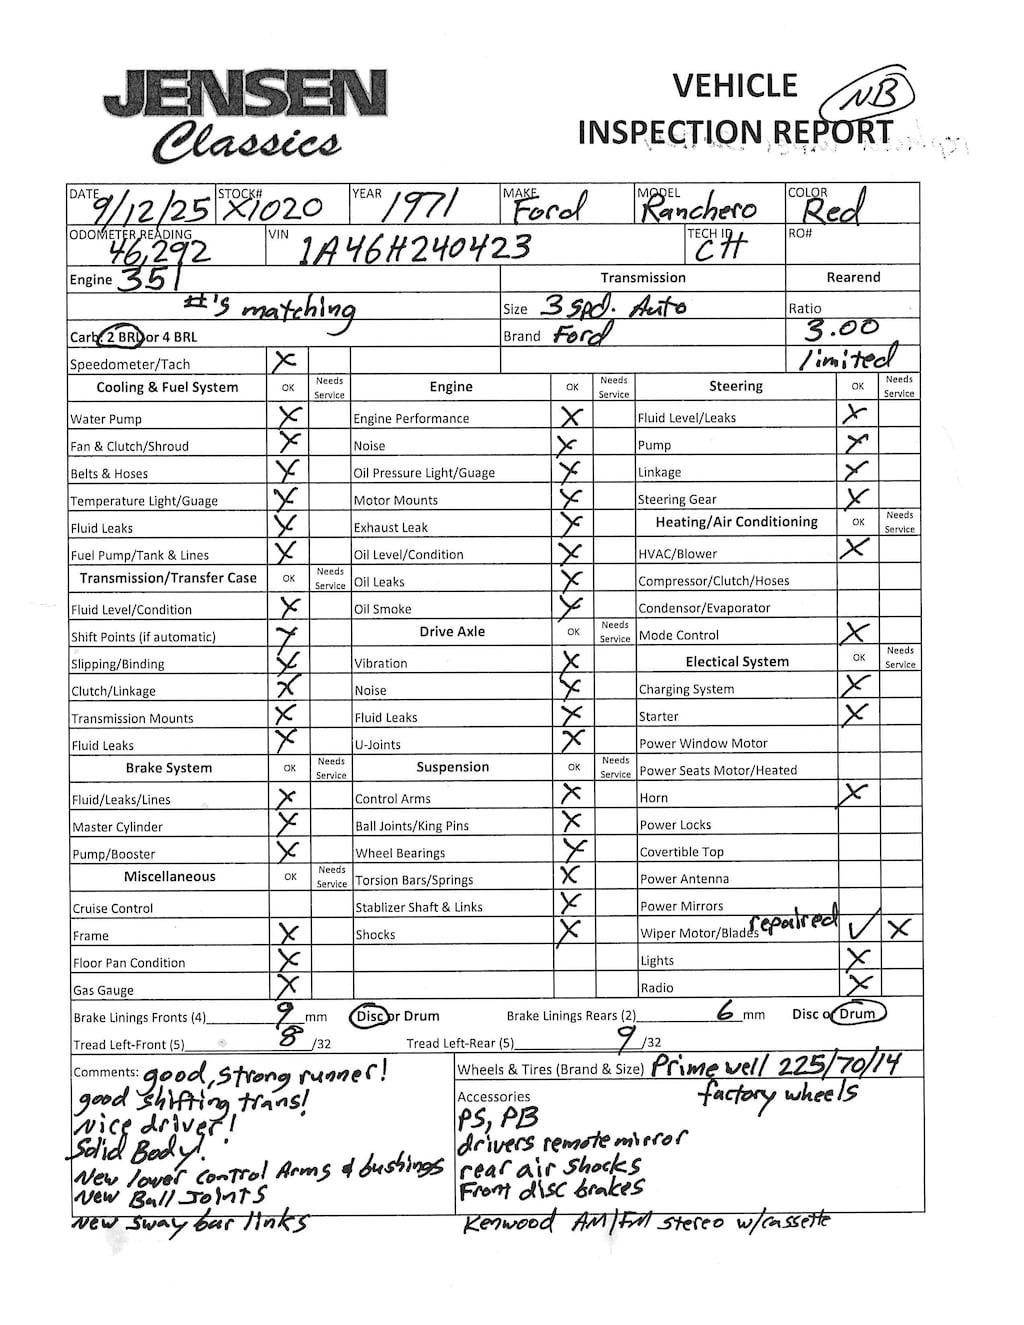 JENSEN
Classics
VEHICLE
INSPECTION REPORT
NB
DATE 9/12/25 STOCK# X1020 YEAR 1971 MAKE Ford MODEL Ranchero COLOR Red
ODOMETER READING 46,292 VIN 1A46H240423 TECH ID CH RO#
Engine 351 Transmission Rearend
#'s matching Size 3 spd. Auto Ratio
Carb: 2 BRL or 4 BRL Brand Ford 3.00
Speedometer/Tach X limited
Cooling & Fuel System OK Needs Service Engine OK Needs Service Steering OK Needs Service
Water Pump X Engine Performance X Fluid Level/Leaks X
Fan & Clutch/Shroud X Noise X Pump X
Belts & Hoses X Oil Pressure Light/Guage X Linkage X
Temperature Light/Guage X Motor Mounts X Steering Gear X
Fluid Leaks X Exhaust Leak X Heating/Air Conditioning OK Needs Service
Fuel Pump/Tank & Lines X Oil Level/Condition X HVAC/Blower X
Transmission/Transfer Case OK Needs Service Oil Leaks X Compressor/Clutch/Hoses
Fluid Level/Condition X Oil Smoke X Condensor/Evaporator
Shift Points (if automatic) X Drive Axle OK Needs Service Mode Control X
Slipping/Binding X Vibration X Electical System OK Needs Service
Clutch/Linkage X Noise X Charging System X
Transmission Mounts X Fluid Leaks X Starter X
Fluid Leaks X U-Joints X Power Window Motor
Brake System OK Needs Service Suspension OK Needs Service Power Seats Motor/Heated
Fluid/Leaks/Lines X Control Arms X Horn X
Master Cylinder X Ball Joints/King Pins X Power Locks
Pump/Booster X Wheel Bearings X Covertible Top
Miscellaneous OK Needs Service Torsion Bars/Springs X Power Antenna
Cruise Control Stablizer Shaft & Links X Power Mirrors
Frame X Shocks X Wiper Motor/Blades repaired ✓ X
Floor Pan Condition X Lights X
Gas Gauge X Radio X
Brake Linings Fronts (4) 9 mm Disc or Drum Brake Linings Rears (2) 6 mm Disc or Drum
Tread Left-Front (5) 8 /32 Tread Left-Rear (5) 9 /32
Comments: good, strong runner!
good shifting trans!
Nice driver!
Solid Body!
New lower control Arms & bushings
New Ball Joints
New sway bar links
Wheels & Tires (Brand & Size) Primewell 225/70/14
factory wheels
Accessories
PS, PB
drivers remote mirror
rear air shocks
Front disc brakes
Kenwood AM/FM stereo w/cassette